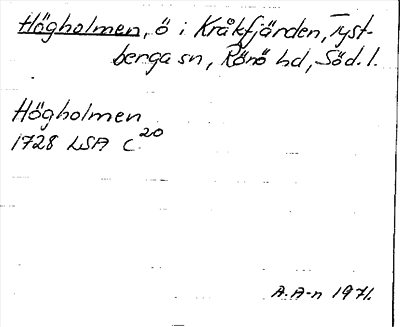 Högholmen, ö i Kråkfjärden, Tyst-
berga sn, Rönö hd, Söd. l.
Högholmen
1728 LSA C 20
A. A-n 1971.